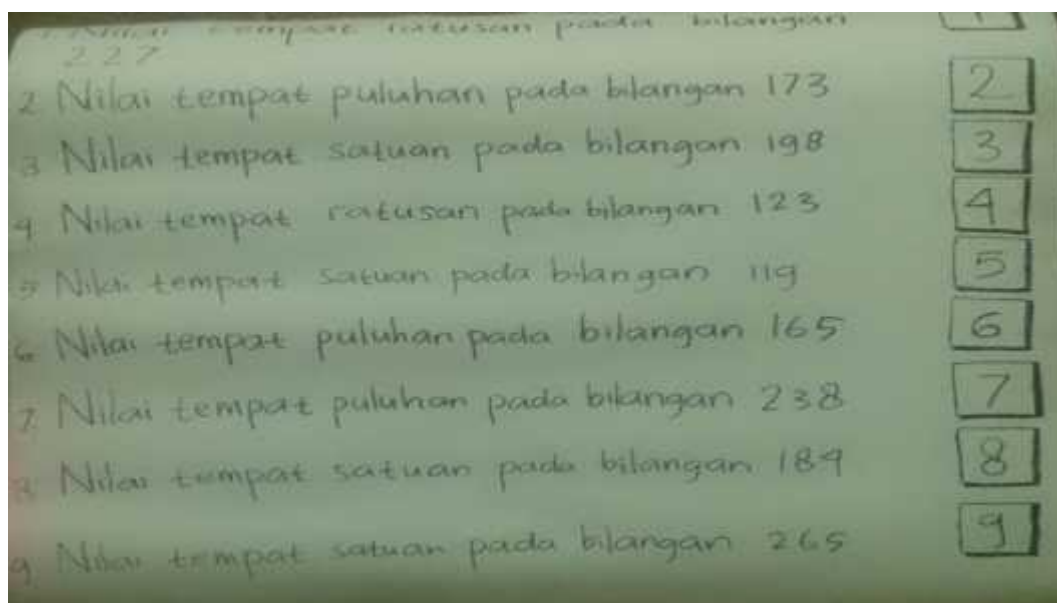 1. Nilai tempat ratusan pada bilangan 1
227
2 Nilai tempat puluhan pada bilangan 173 2
3 Nilai tempat satuan pada bilangan 198 3
4 Nilai tempat ratusan pada bilangan 123 4
5 Nilai tempat satuan pada bilangan 119 5
6 Nilai tempat puluhan pada bilangan 165 6
7 Nilai tempat puluhan pada bilangan 238 7
Nilai tempat satuan pada bilangan 189 8
9 Nilai tempat satuan pada bilangan 265 9